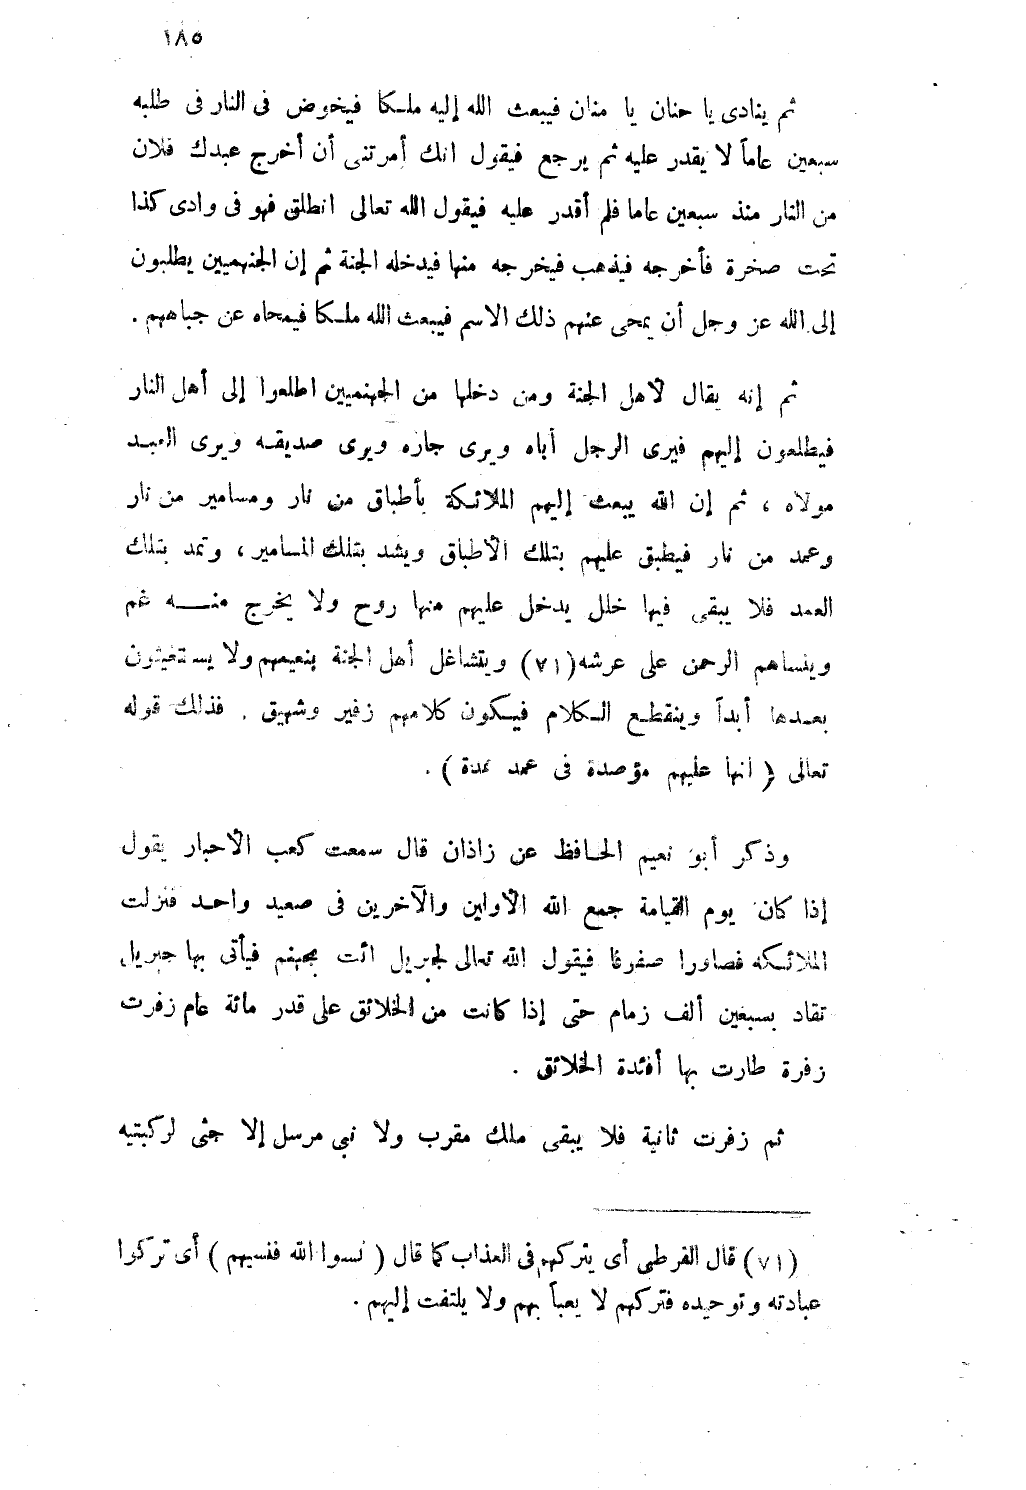 ١٨٥
ثم ينادى يا حنان يا منان فيبعث الله إليه ملكا فيخوض فى النار فى طلبه
سبعين عاماً لا يقدر عليه ثم يرجع فيقول انك أمرتنى أن أخرج عبدك فلان
من النار منذ سبعين عاما فلم أقدر عليه فيقول الله تعالى انطلق فهو فى وادى كذا
تحت صخرة فأخرجه فيذهب فيخرجه منها فيدخله الجنة ثم إن الجنهميين يطلبون
إلى الله عز وجل أن يمحى عنهم ذلك الاسم فيبعث الله ملكا فيمحاه عن جباههم .
ثم إنه يقال لأهل الجنة ومن دخلها من الجهنميين اطلعوا إلى أهل النار
فيطلعون إليهم فيرى الرجل أباه ويرى جاره ويرى صديقه ويرى العبد
مولاه ، ثم إن الله يبعث إليهم الملائكة بأطباق من نار ومسامير من نار
وعمد من نار فيطبق عليهم بتلك الأطباق ويشد بتلك المسامير ، وتمد بتلك
العمد فلا يبقى فيها خلل يدخل عليهم منها روح ولا يخرج منه غم
وينساهم الرحمن على عرشه (٧١) ويتشاغل أهل الجنة بنعيمهم ولا يستغيثون
بعدها أبداً وينقطع الكلام فيكون كلامهم زفير وشهيق . فذلك قوله
تعالى ( انها عليهم مؤصدة فى عمد ممدة ) .
وذكر أبو نعيم الحافظ عن زاذان قال سمعت كعب الأحبار يقول
إذا كان يوم القيامة جمع الله الأولين والآخرين فى صعيد واحد فنزلت
الملائكه فصاورا صفوفا فيقول الله تعالى لجبريل ائت بجهنم فيأتى بها جبريل
تقاد بسبعين ألف زمام حتى إذا كانت من الخلائق على قدر مائة عام زفرت
زفرة طارت بها أفئدة الخلائق .
ثم زفرت ثانية فلا يبقى ملك مقرب ولا نبى مرسل إلا جثى لركبتيه
(٧١) قال القرطبى أى يتركهم فى العذاب كما قال ( نسوا الله فنسيهم ) أى تركوا
عبادته وتوحيده فتركهم لا يعبأ بهم ولا يلتفت إليهم .